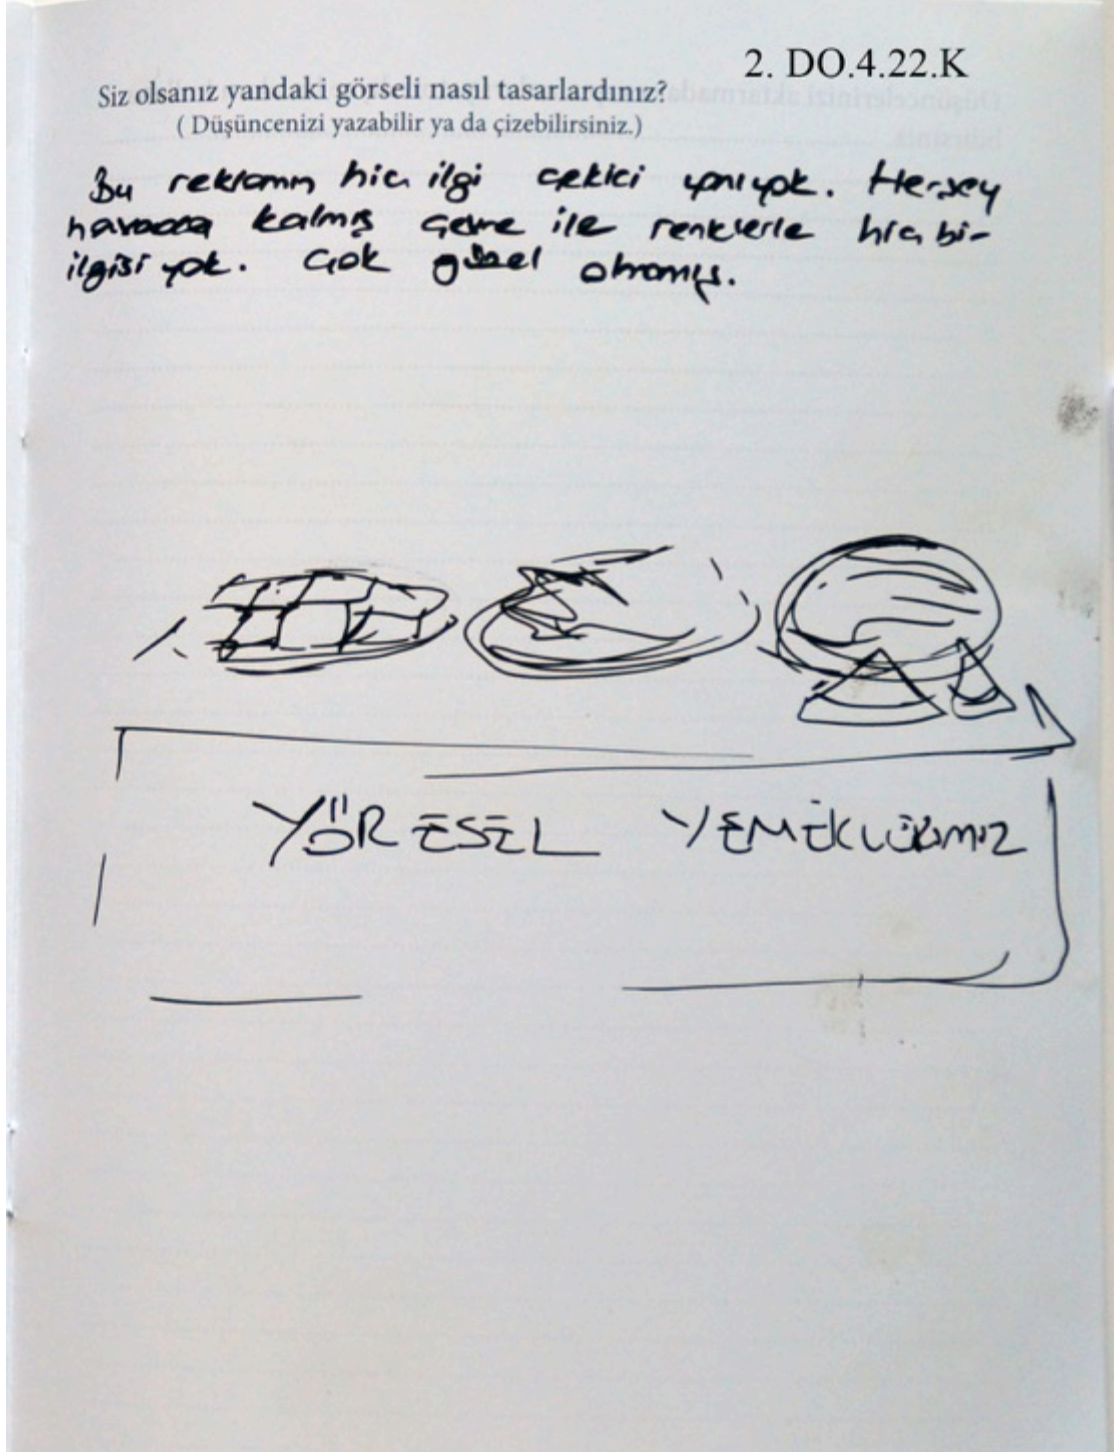 2. DO.4.22.K
Siz olsanız yandaki görseli nasıl tasarlardınız?
( Düşüncenizi yazabilir ya da çizebilirsiniz.)
Bu reklamın hiç ilgi çekici yanı yok. Herşey
havada kalmış çevre ile renklerle hiç bi-
ilgisi yok. Çok güzel olmamış.
YÖRESEL YEMEKLERİMİZ